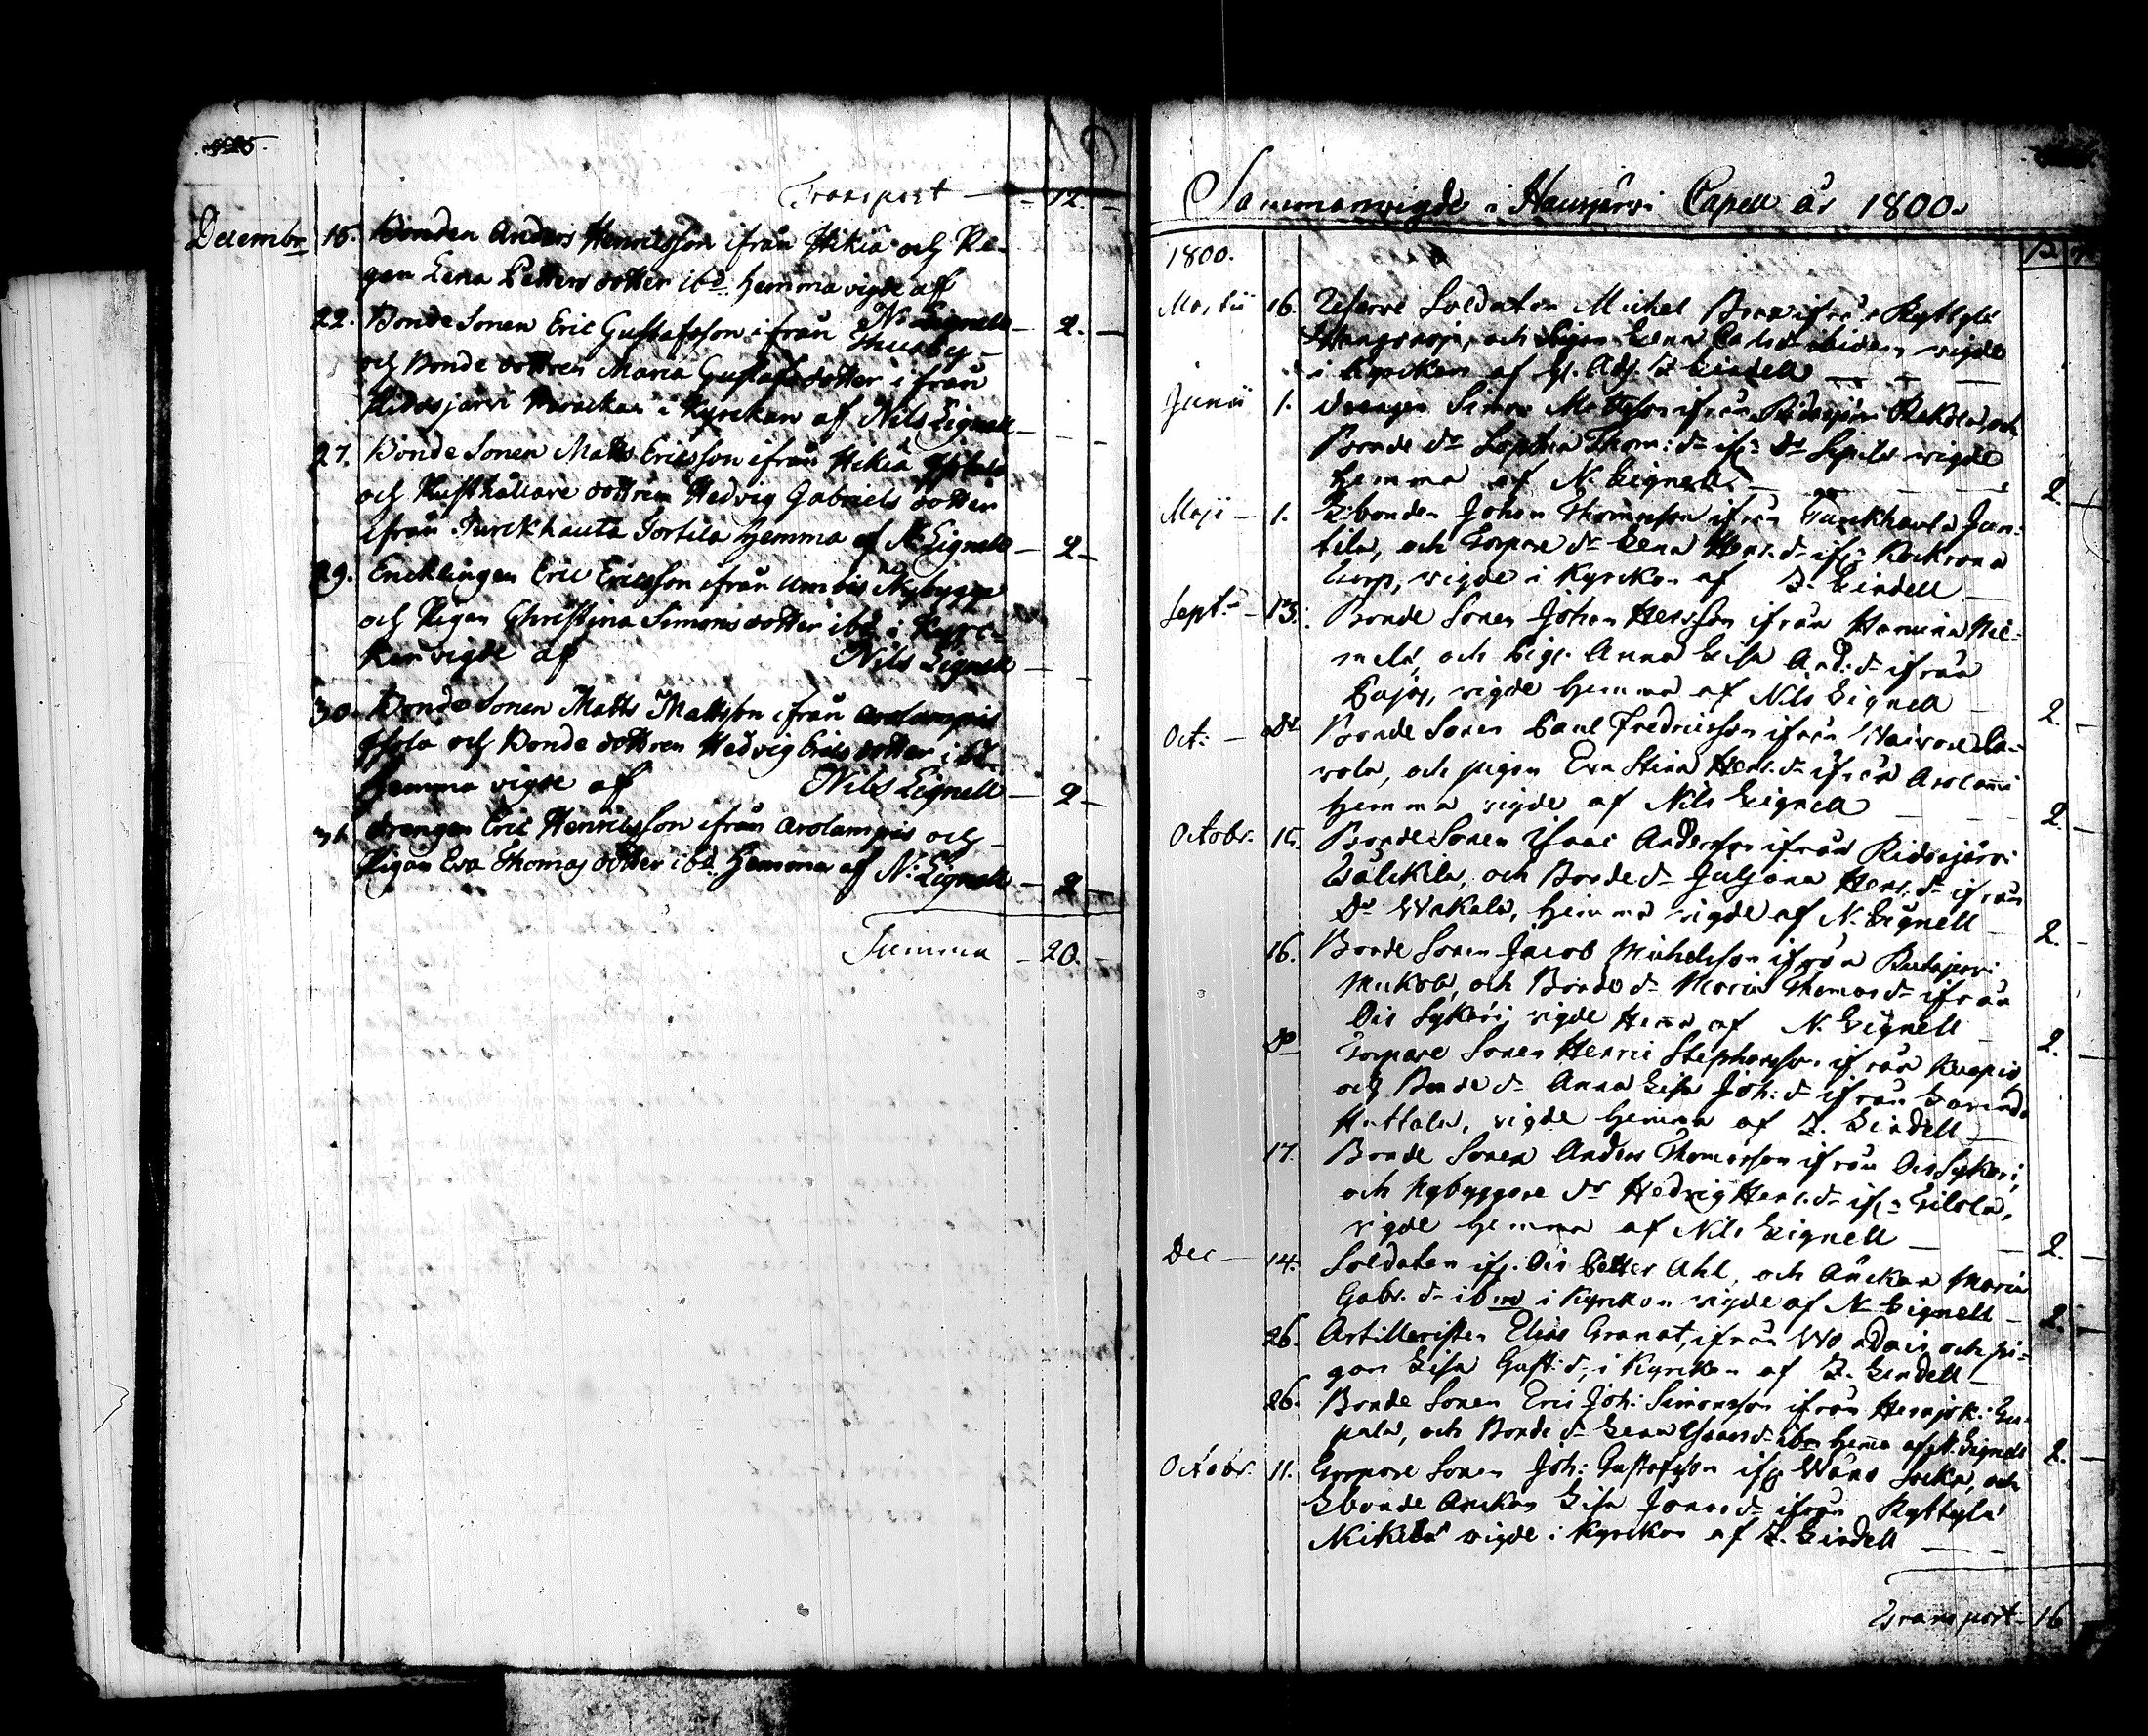 Transport — 12. —
Decembr 15. Bonden Anders Henricsson ifrån Hikiä och Pi-
gan Lena Petters dotter ibd. hemma vigde af
N. Lignell — 2. —
22. Bonde Sonen Eric Gustafsson ifrån
och Bonde dottren Maria Gustafs dotter ifrån
Ridasjärvi i Kyrckan af Nils Lignell —
27. Bonde Sonen Matts Ericsson ifrån Hikiä
och Rusthållare dottren Hedvig Gabriels dotter
ifrån Turckhauta Torttila hemma af N. Lignell — 2 —
29. Encklingen Eric Ericsson ifrån Nybygge
och Pigan Christina Simons dotter ibd. i Kyrc-
kan vigde af Nils Lignell —
30. Bonde Sonen Matts Mattsson ifrån Arolampis
och Bonde dottren Hedvig Erics dotter ibd.
hemma vigde af Nils Lignell — 2 —
31. Drengen Eric Henricsson ifrån Arolampis och
Pigan Eva Thomas dotter ibd. hemma af N. Lignell — 2 —
Summa — 20. —
Sammanvigde i Hausjärvi Capell år 1800.
1800.
Martii 16. Reserve Soldaten Michel ifrån Ryttylä
och Pigan Lena Carls d. ibidem vigde
i Kyrckan af H. Adj. Z. Lindell —
Junii 1. Drengen Simon Mattsson ifrån Ridasjärvi och
Bonde dr Sophia Thom: dr ifr. do Seppälä vigde
hemma af N. Lignell. — 2. —
Maji — 1. Lbonden Johan Thomasson ifrån Turckhauta Jun-
tila, och Torpare dr Lena Henr. dr ifr.
Torp, vigde i Kyrckan af Z. Lindell —
Septr — 13. Bonde Sonen Johan Henrsson ifrån Hamina Nie-
melä, och Pigan Anna Lisa And: dr ifrån
vigde hemma af Nils Lignell — 2. —
Oct: — do Bonde Sonen Paul Fredricsson ifrån
vola, och pigan Eva Stina Henr. dr ifrån Arolamī
hemma vigde af Nils Lignell 2. —
Octobr. 15. Bonde Sonen Isaac Andersson ifrån Ridasjärvi
Wälckilä, och Bonde dr Juljana Henr. dr ifrån
do Wakala, hemma vigde af N. Lignell 2. —
16. Bonde Sonen Jacob Michelsson ifrån
och Bonde dr Maria Thomas dr ifrån
Ois Sykäri vigde hema af N. Lignell 2. —
do Torpare Sonen Henric Stephansson ifrån
och Bonde dr Anna Lisa Joh: dr ifrån
Huttala, vigde hemma af Z. Lindell —
17. Bonde Sonen Anders Thomasson ifrån Ois Sykäri,
och Nybyggare dr Hedvig Henr. dr ifr.
vigde hemma af Nils Lignell — 2. —
Dec — 14. Soldaten ifr. Ois Petter Ahl, och Änckan Maria
Gabr. dr ibm i Kyrckan vigde af N. Lignell — 2. —
26. Artilleristen Elias Granat, ifrån och pi-
gan Lisa Gust: dr, i Kyrckan af Z. Lindell —
26. Bonde Sonen Eric Joh: Simonsson ifrån
och Bonde dr Lena Isaacs dr ibm hema af N. Lignell 2. —
Octobr. 11. Torpare Sonen Joh: Gustafsson ifr. Wånå Socken, och
Lbonde Änckan Lisa Jonas dr ifrån Ryttylä
Mikkilä vigde i Kyrckan af Z. Lindell —
Transport — 16